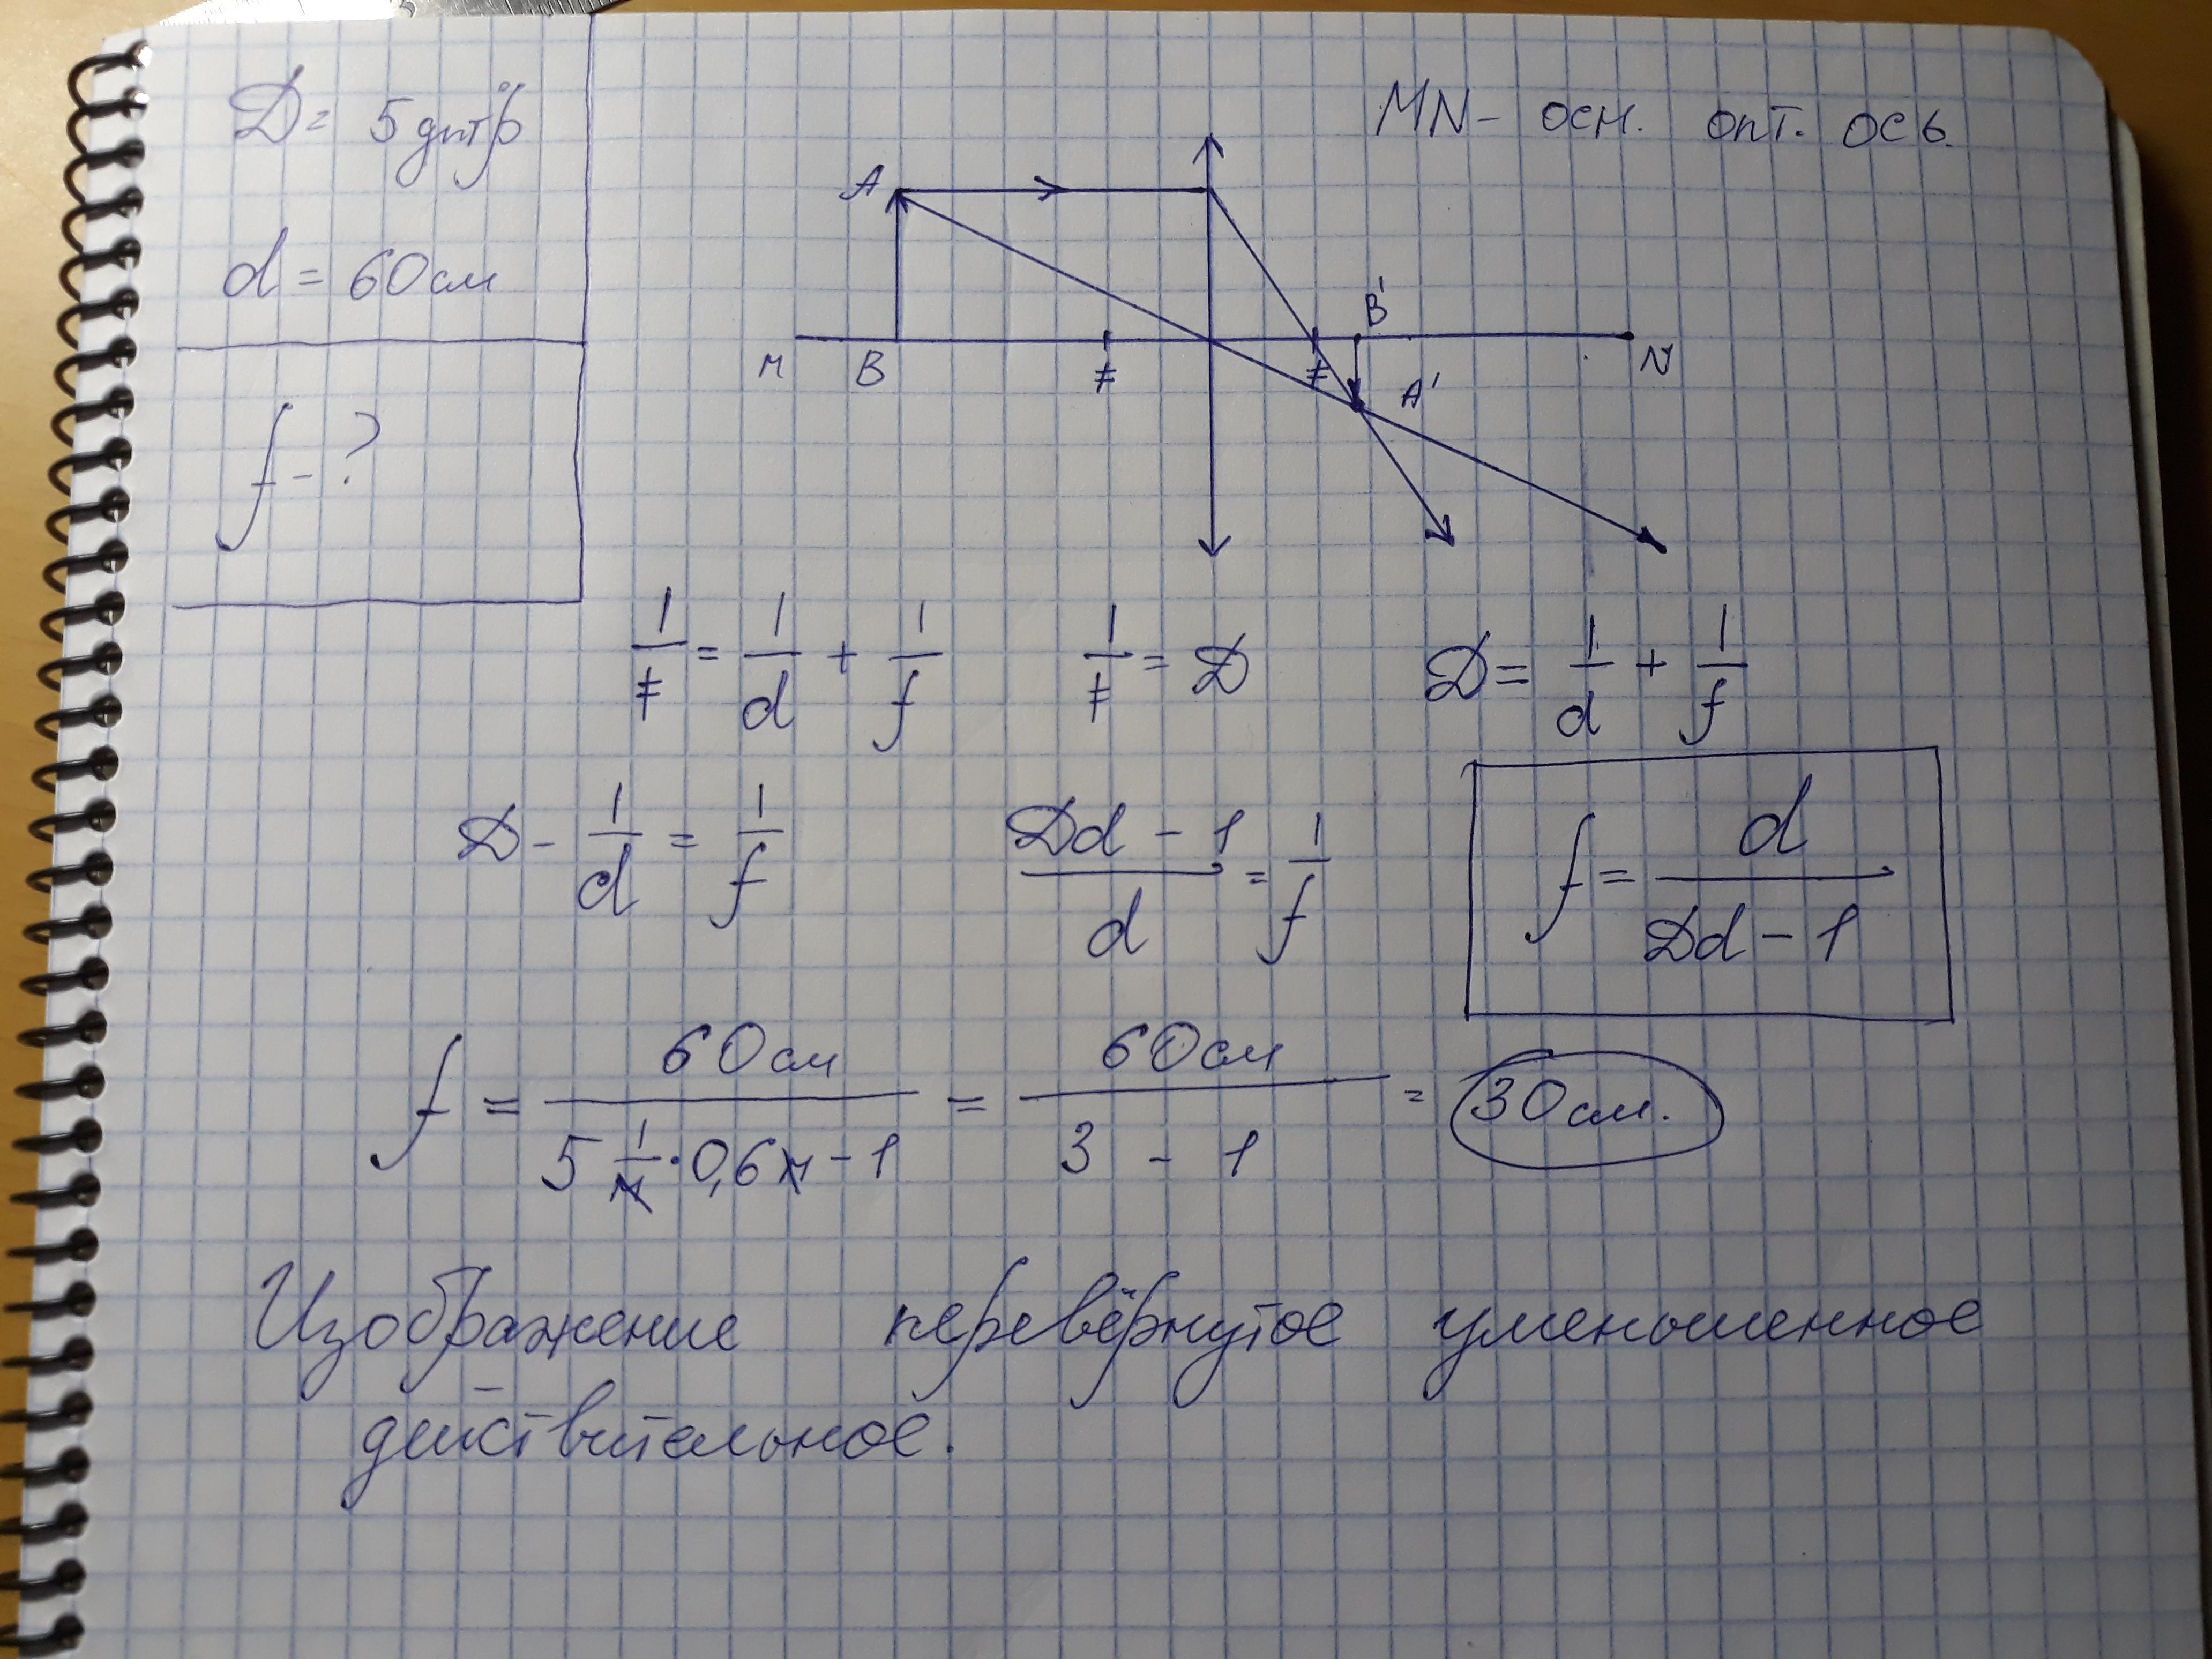 D = 5 дптр
MN - осн. опт. ось.
A
d = 60 см
B'
M B F F A' N
f - ?
1/F = 1/d + 1/f 1/F = D D = 1/d + 1/f
D - 1/d = 1/f (Dd - 1)/d = 1/f f = d/(Dd - 1)
f = 60 см/(5 1/м · 0,6 м - 1) = 60 см/(3 - 1) = 30 см.
Изображение перевёрнутое уменьшенное
действительное.